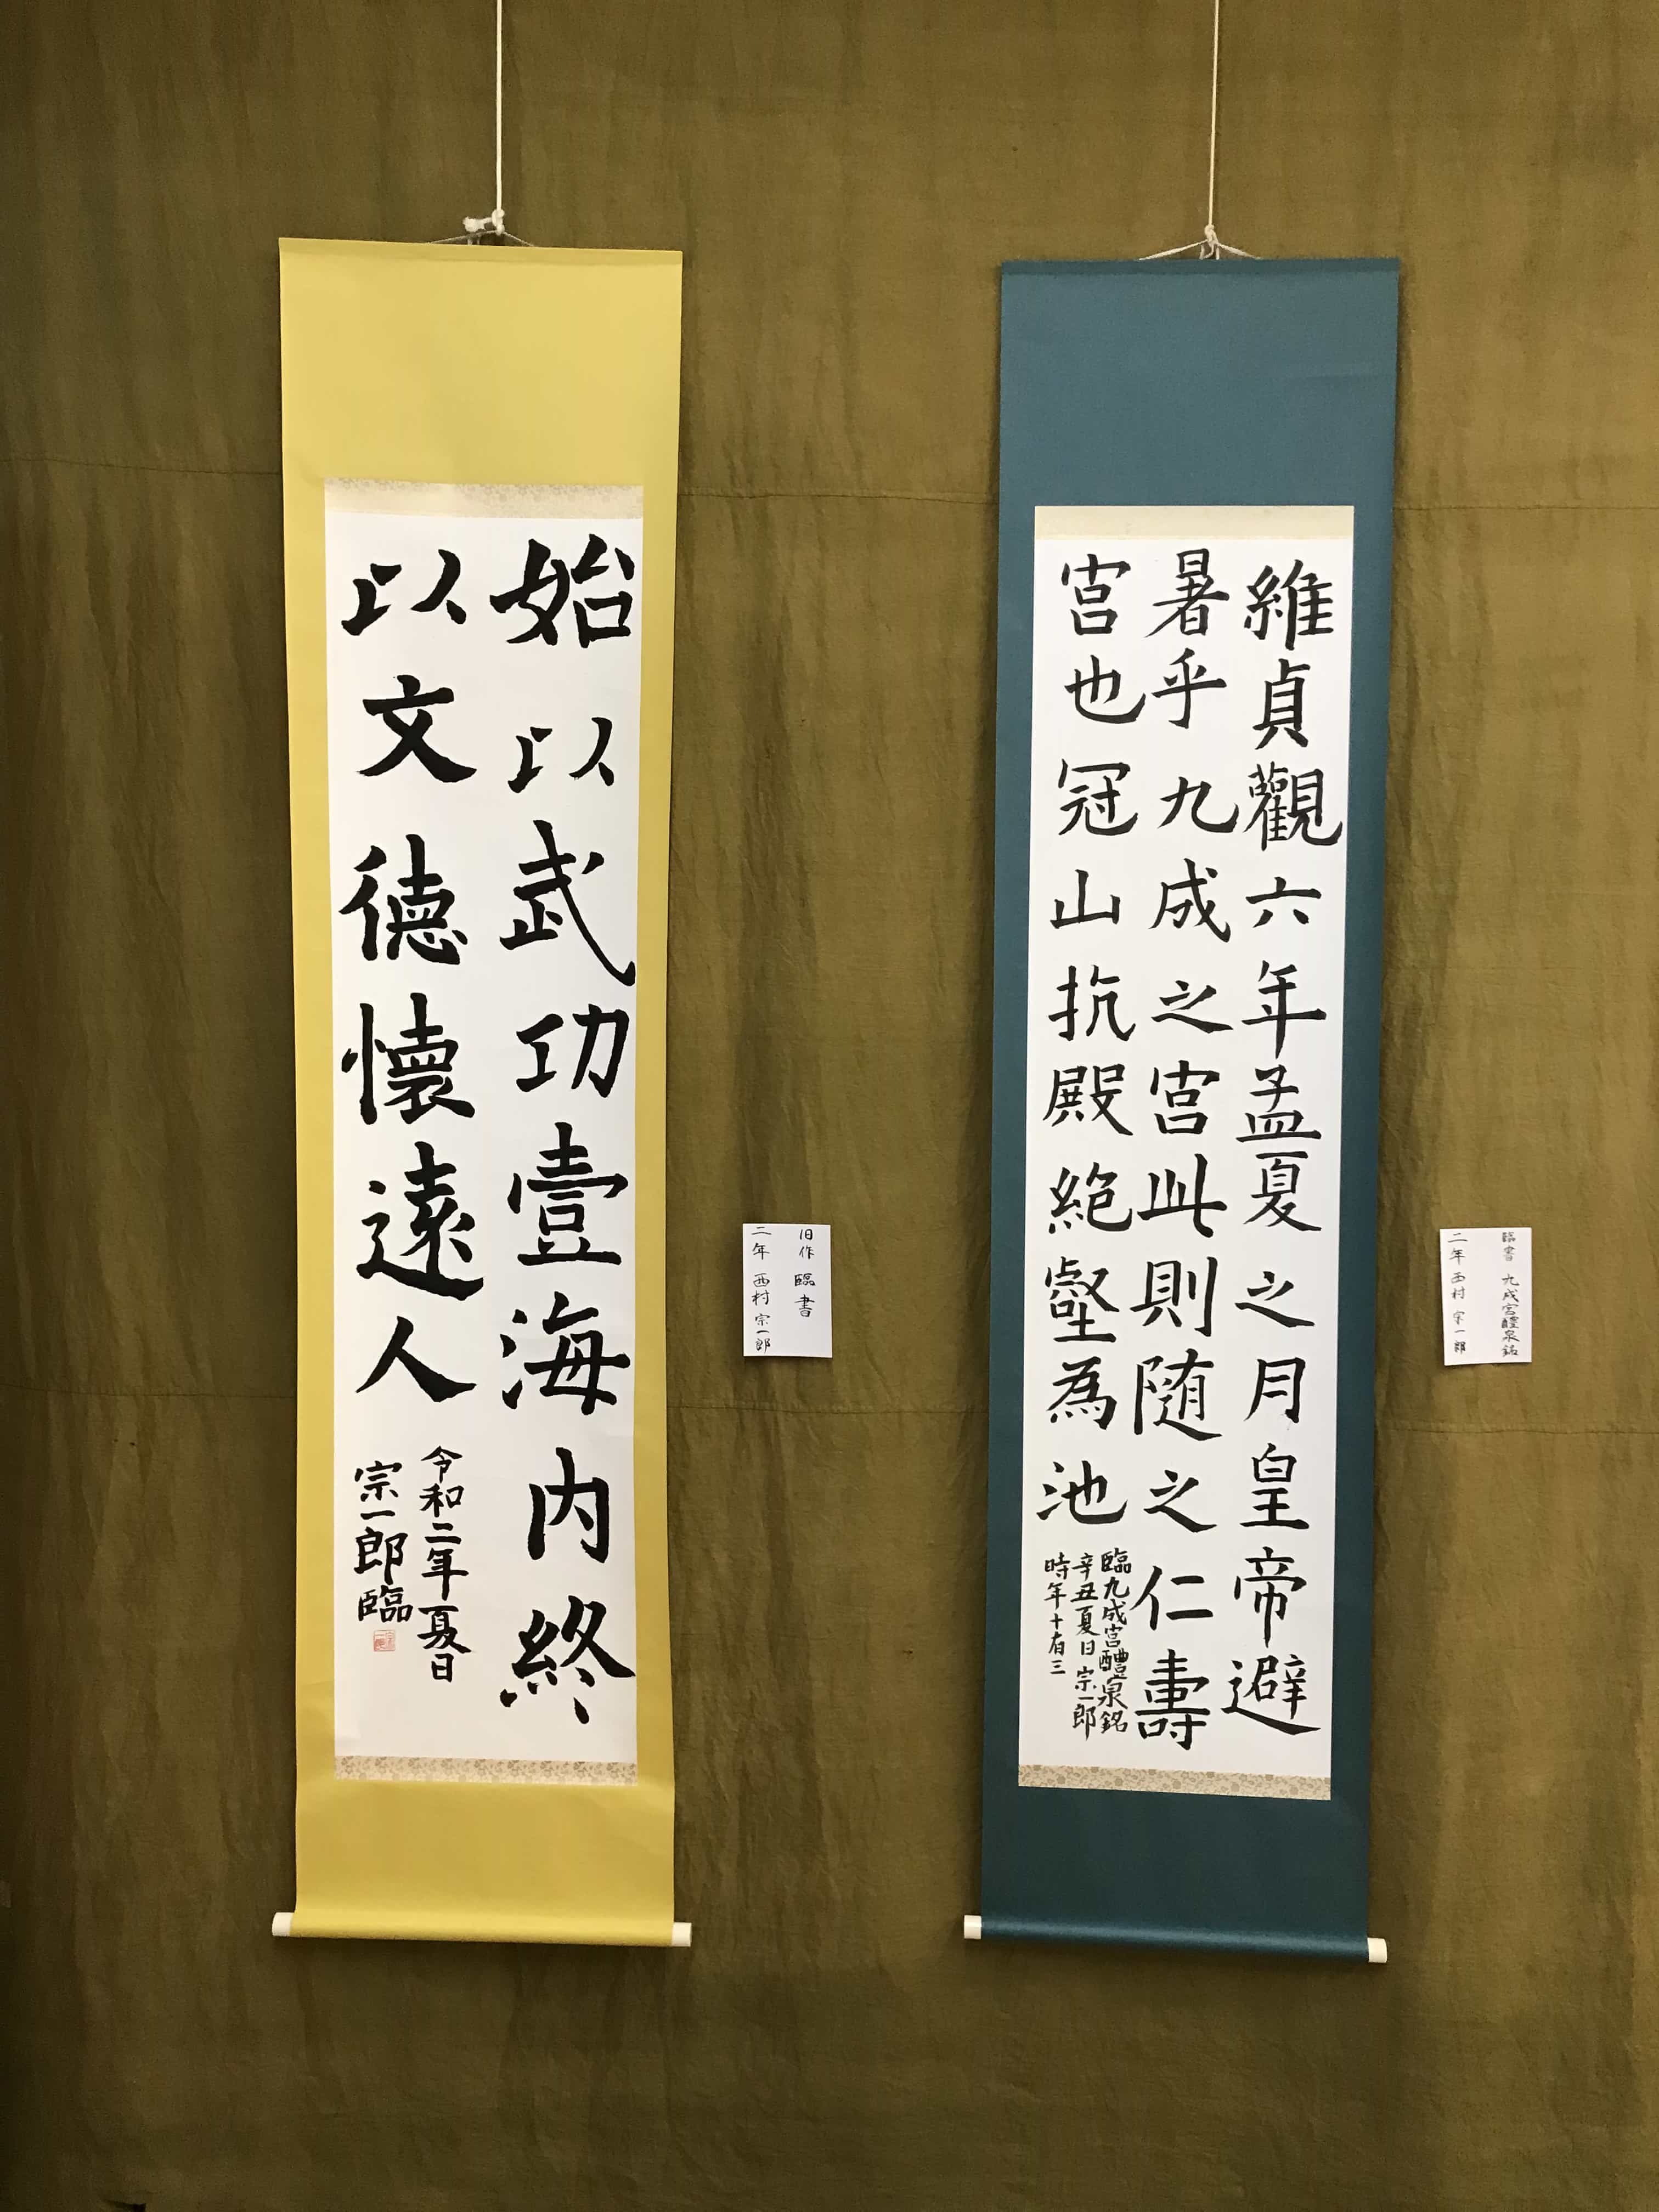 維貞觀六年孟夏之月皇帝避
暑乎九成之宮此則随之仁壽
宮也冠山抗殿絶壑為池
臨九成宮醴泉銘
辛丑夏日 宗一郎
時年十有三
臨書 九成宮醴泉銘
二年 西村 宗一郎
始以武功壹海内終
以文德懐遠人
令和二年夏日
宗一郎臨
旧作 臨書
二年 西村 宗一郎